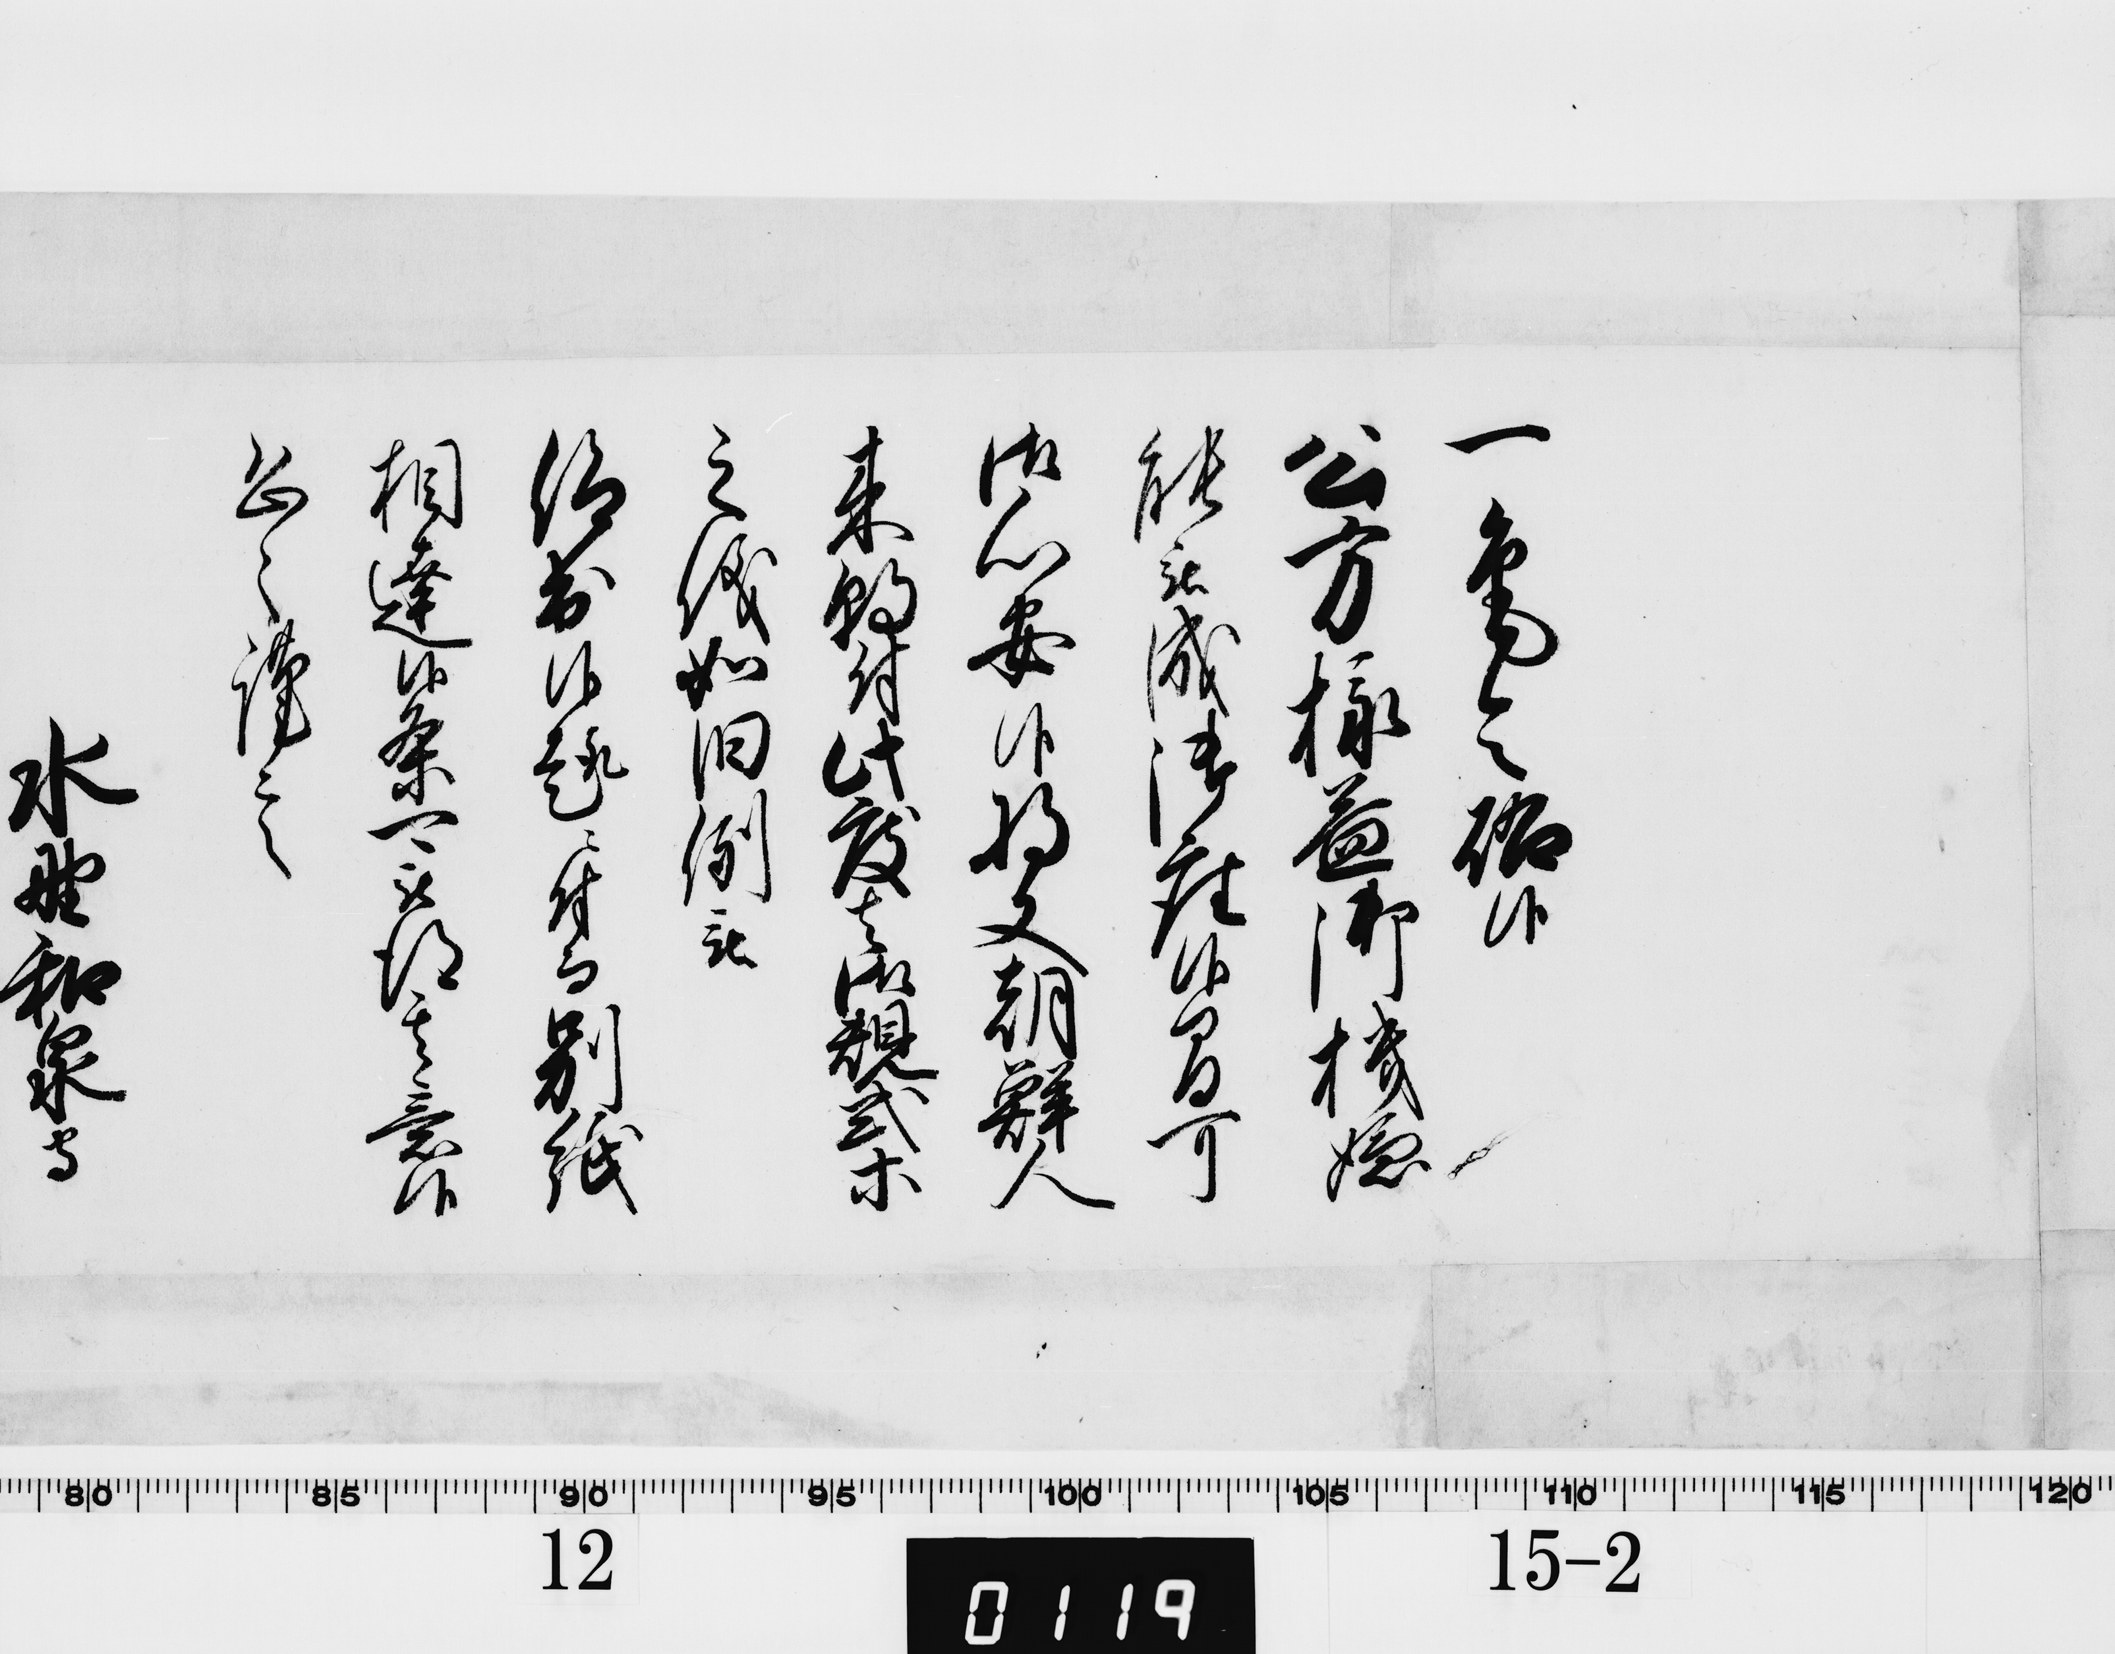 一筆令啓候
公方様益御機嫌
能被成御座候間可
御心安候将又朝鮮人
来朝付此度者御規式等
之儀如旧例被
仰出候趣ニ付而別紙
相達候条可被得其意候
恐々謹言
水野和泉守
80 85 90 95 100 105 110 115 120
12 15-2
0119